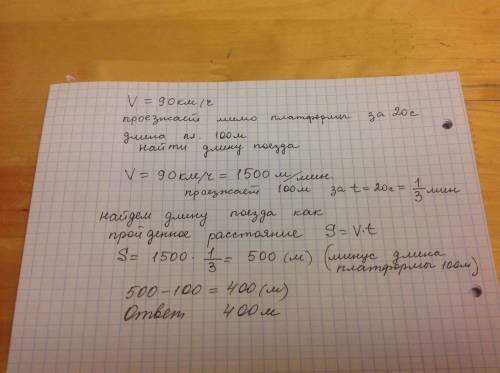 V = 90 км/ч
проезжает мимо платформы за 20с
длина пл. 100м
Найти длину поезда
V = 90 км/ч = 1500 м/мин
проезжает 100м за t = 20с = 1/3 мин
найдем длину поезда как
пройденное расстояние S = V·t
S = 1500 · 1/3 = 500 (м) (минус длина
платформы 100м)
500 - 100 = 400 (м)
Ответ 400м